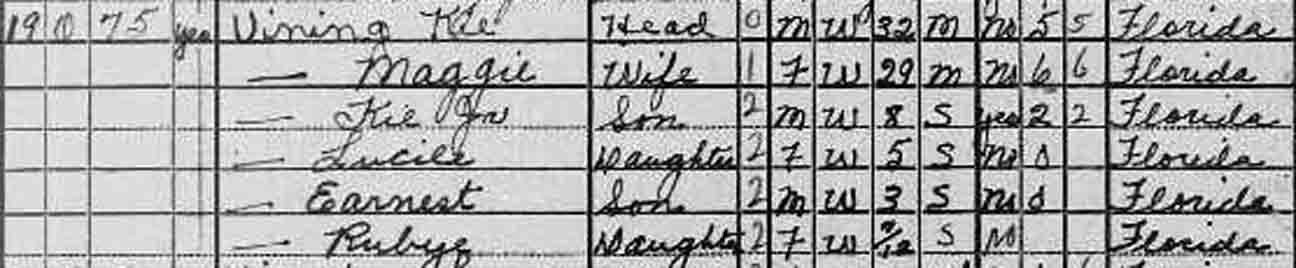 19 0 75 yes Vining Kie Head 0 M W 32 M No 5 5 Florida
— Maggie Wife 1 F W 29 M No 6 6 Florida
— Kie Jr Son 2 M W 8 S yes 2 2 Florida
— Lucile Daughter 2 F W 5 S No 0 Florida
— Earnest Son 2 M W 3 S No 0 Florida
— Rubye Daughter 2 F W /12 S No Florida